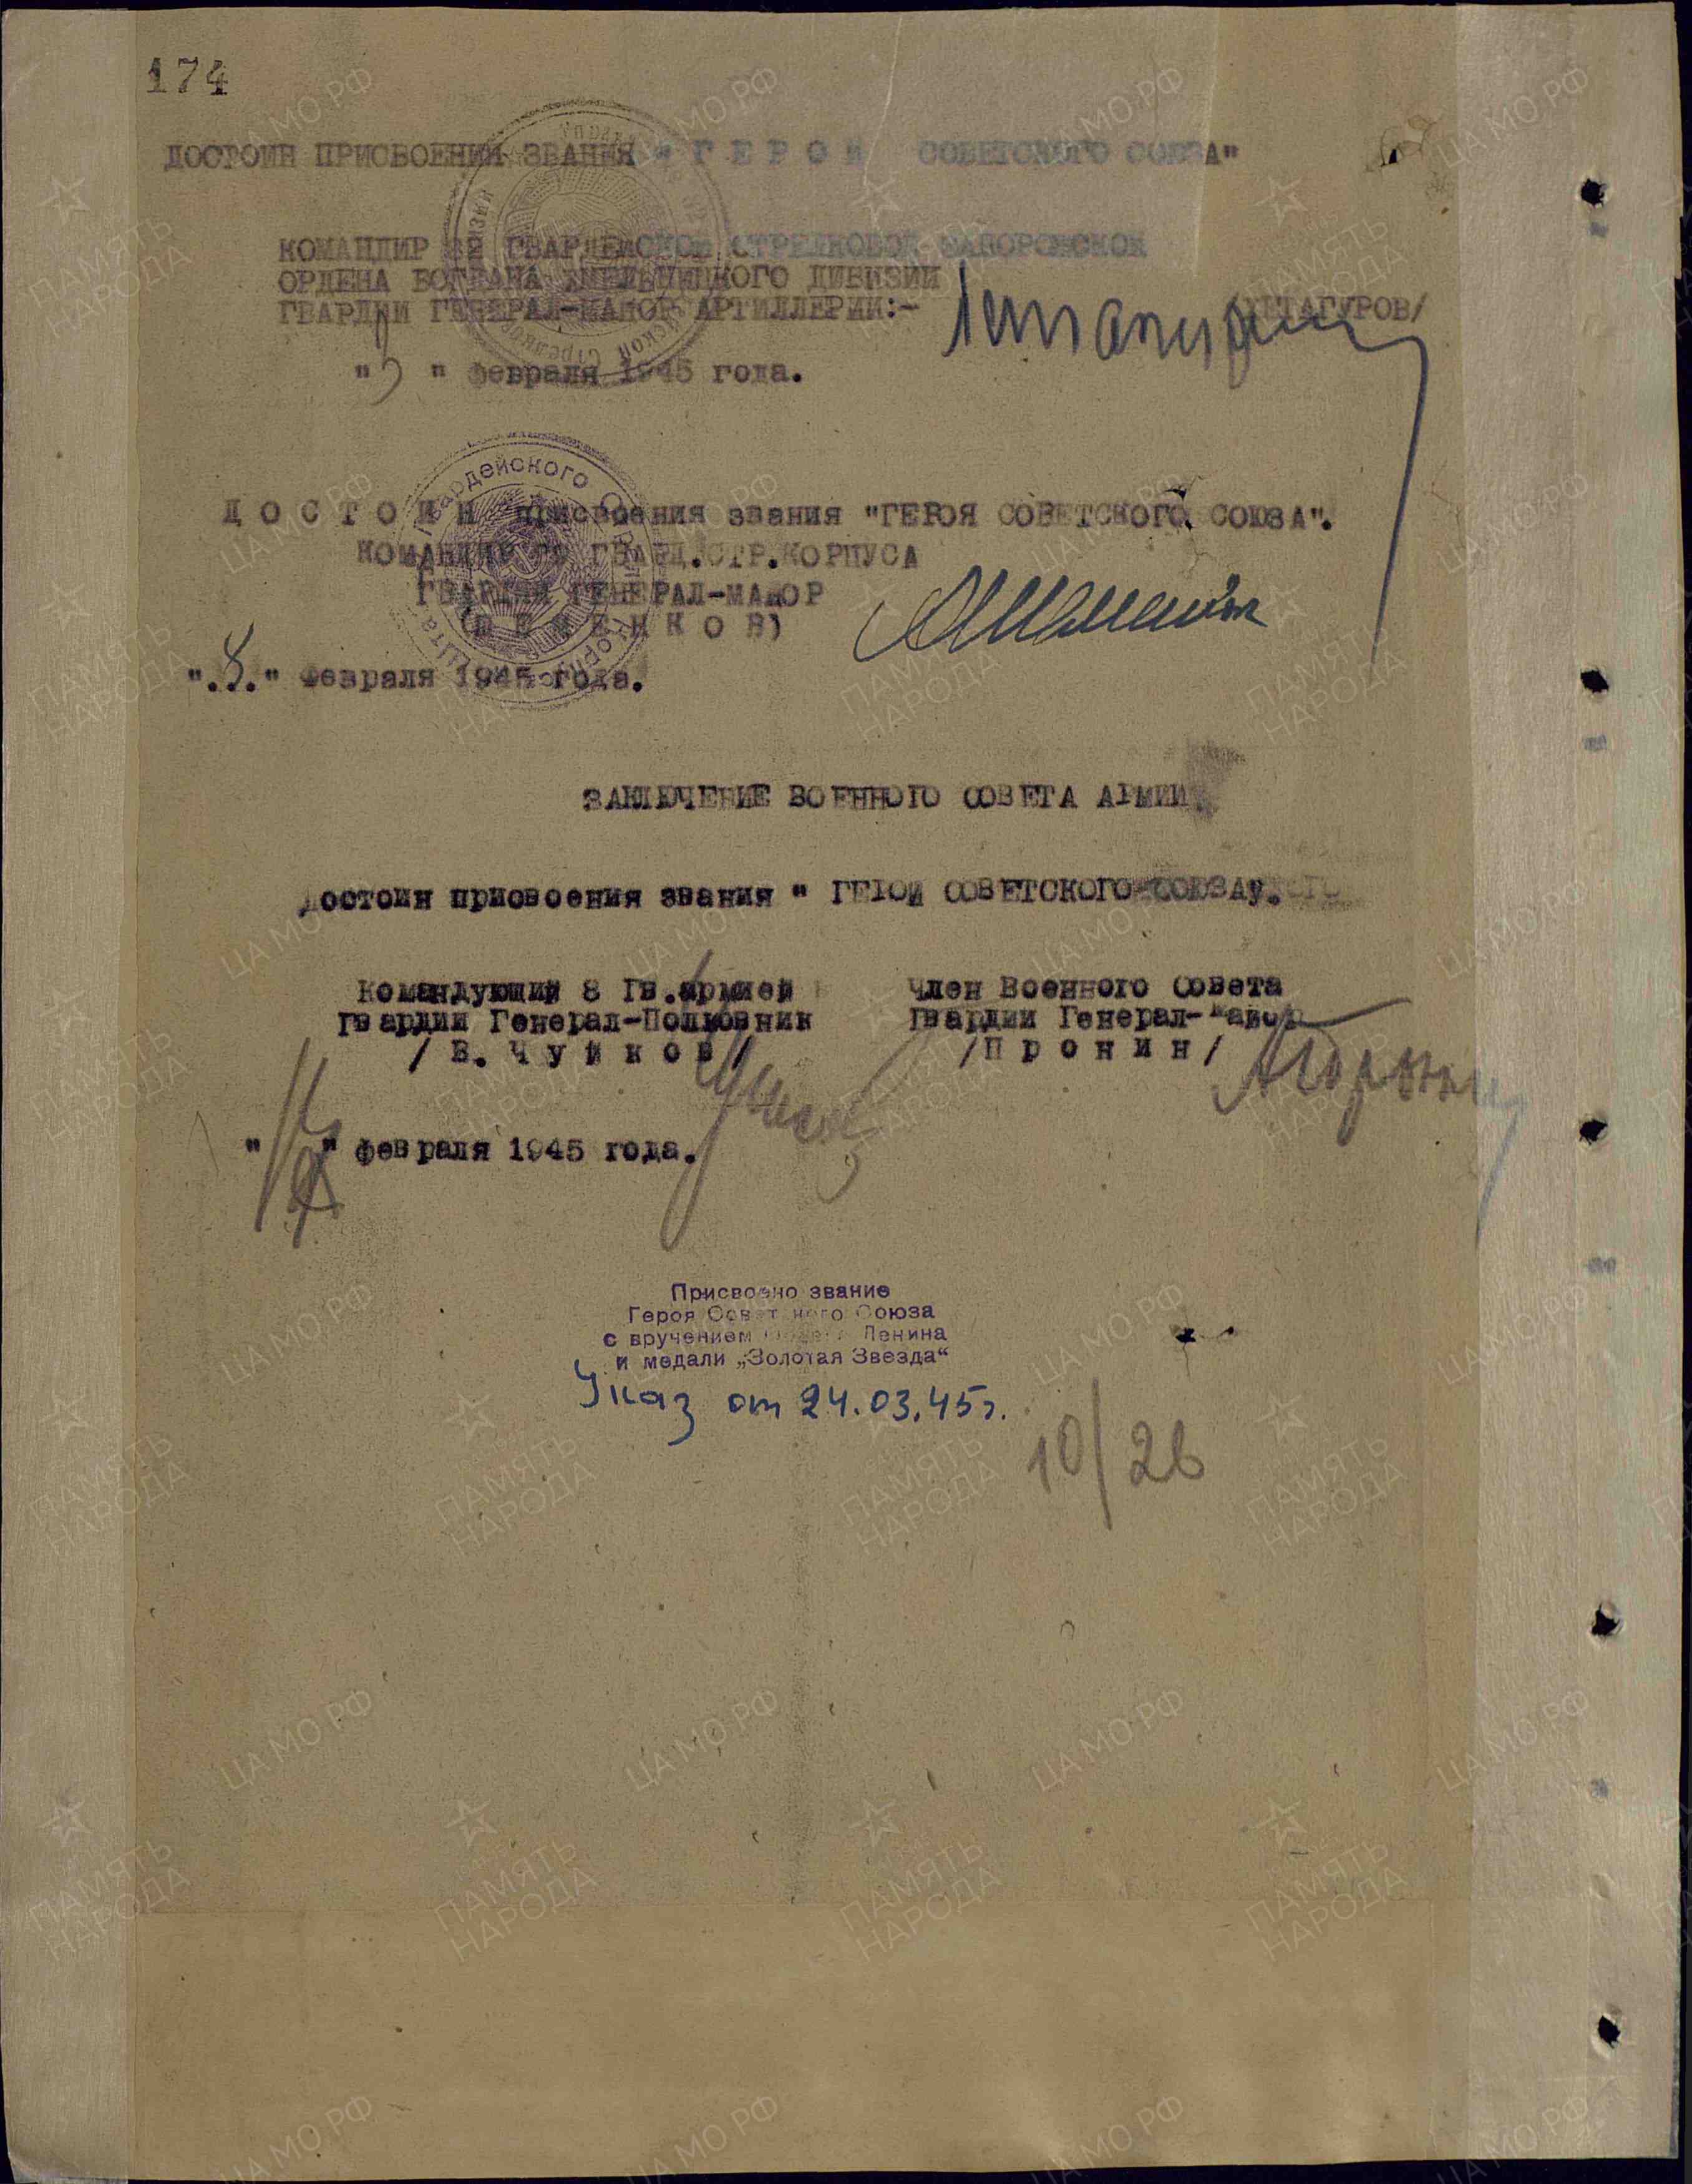 174
ДОСТОИН ПРИСВОЕНИЯ ЗВАНИЯ "ГЕРОЙ СОВЕТСКОГО СОЮЗА"
КОМАНДИР 82 ГВАРДЕЙСКОЙ СТРЕЛКОВОЙ ЗАПОРОЖСКОЙ
ОРДЕНА БОГДАНА ХМЕЛЬНИЦКОГО ДИВИЗИИ
ГВАРДИИ ГЕНЕРАЛ-МАЙОР АРТИЛЛЕРИИ:-
/ХЕТАГУРОВ/
" " февраля 1945 года.
ДОСТОИН присвоения звания "ГЕРОЯ СОВЕТСКОГО СОЮЗА".
КОМАНДИР ГВАРД.СТР.КОРПУСА
ГВАРДИИ ГЕНЕРАЛ-МАЙОР
".8." февраля 1945 года.
ЗАКЛЮЧЕНИЕ ВОЕННОГО СОВЕТА АРМИИ
Достоин присвоения звания "ГЕРОЙ СОВЕТСКОГО СОЮЗА".
Командующий 8 Гв.Армией
Гвардии Генерал-Полковник
/В. Чуйков/
Член Военного Совета
Гвардии Генерал-Майор
/Пронин/
" " февраля 1945 года.
Присвоено звание
Героя Советского Союза
с вручением Ордена Ленина
и медали „Золотая Звезда“
Указ от 24.03.45г.
10/26